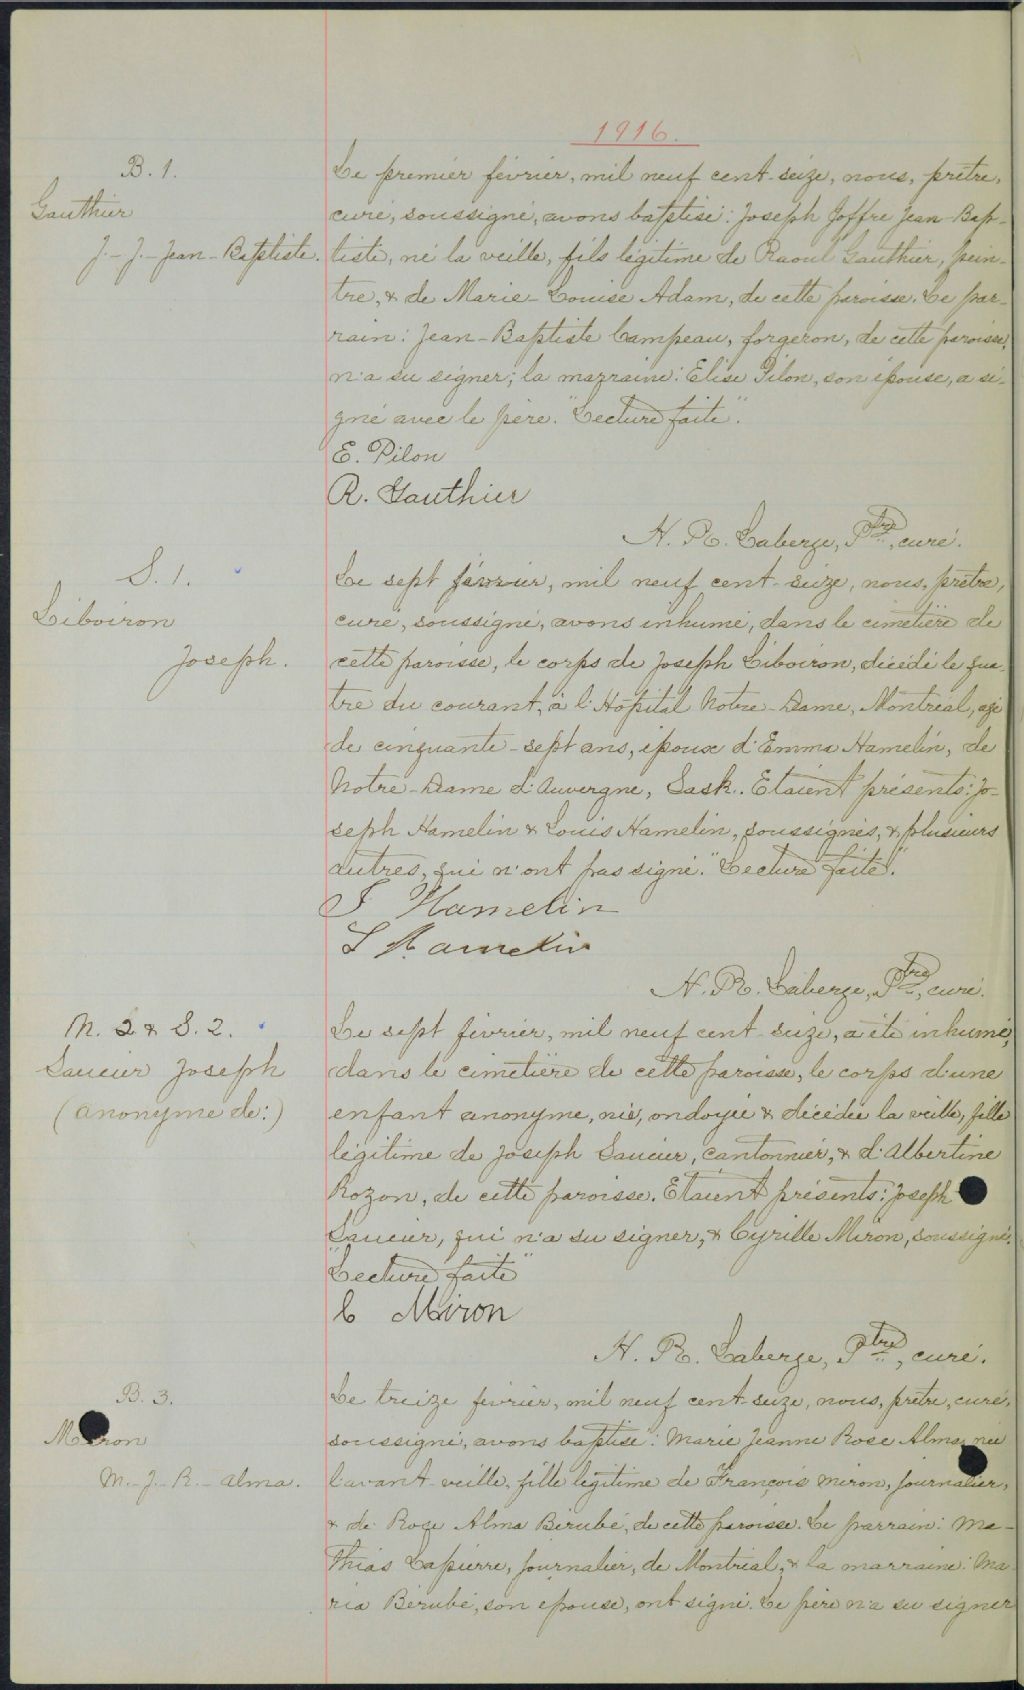 1916.
B. 1.
Gauthier
J.-J.-Jean-Baptiste.
Le premier février, mil neuf cent-seize, nous, prêtre,
curé, soussigné, avons baptisé: Joseph Joffre Jean-Bap-
tiste, né la veille, fils légitime de Raoul Gauthier, pein-
tre, & de Marie-Louise Adam, de cette paroisse. Le par-
rain: Jean-Baptiste Campeau, forgeron, de cette paroisse,
n'a su signer; la marraine: Elise Pilon, son épouse, a si-
gné avec le père. "Lecture faite".
E. Pilon
R. Gauthier
H. R. Laberge, Ptre, curé.
S. 1.
Liboiron
Joseph.
Le sept février, mil neuf cent-seize, nous, prêtre,
curé, soussigné, avons inhumé, dans le cimetière de
cette paroisse, le corps de Joseph Liboiron, décédé le qua-
tre du courant, à l'Hôpital Notre-Dame, Montréal, agé
de cinquante-sept ans, époux d'Emma Hamelin, de
Notre-Dame d'Auvergne, Sask.. Etaient présents: Jo-
seph Hamelin & Louis Hamelin, soussignés, & plusieurs
autres, qui n'ont pas signé. "Lecture faite."
J Hamelin
L Hamelin
H. R. Laberge, Ptre, curé.
N. 2 & S. 2.
Saucier Joseph
(anonyme de:)
Le sept février, mil neuf cent-seize, a été inhumé,
dans le cimetière de cette paroisse, le corps d'une
enfant anonyme, née, ondoyée & décédée la veille, fille
légitime de Joseph Saucier, cantonnier, & d'Albertine
Rozon, de cette paroisse. Etaient présents: Joseph
Saucier, qui n'a su signer, & Cyrille Miron, soussigné.
"Lecture faite"
C Miron
H. R. Laberge, Ptre, curé.
B. 3.
Miron
M.-J.-R.-Alma.
Le treize février, mil neuf cent-seize, nous, prêtre, curé,
soussigné, avons baptisé: Marie Jeanne Rose Alma, née
l'avant-veille, fille légitime de François Miron, journalier,
& de Rose Alma Bérubé, de cette paroisse. Le parrain: Ma-
thias Lapierre, journalier, de Montréal, & la marraine: Ma-
ria Bérubé, son épouse, ont signé. Le père n'a su signer